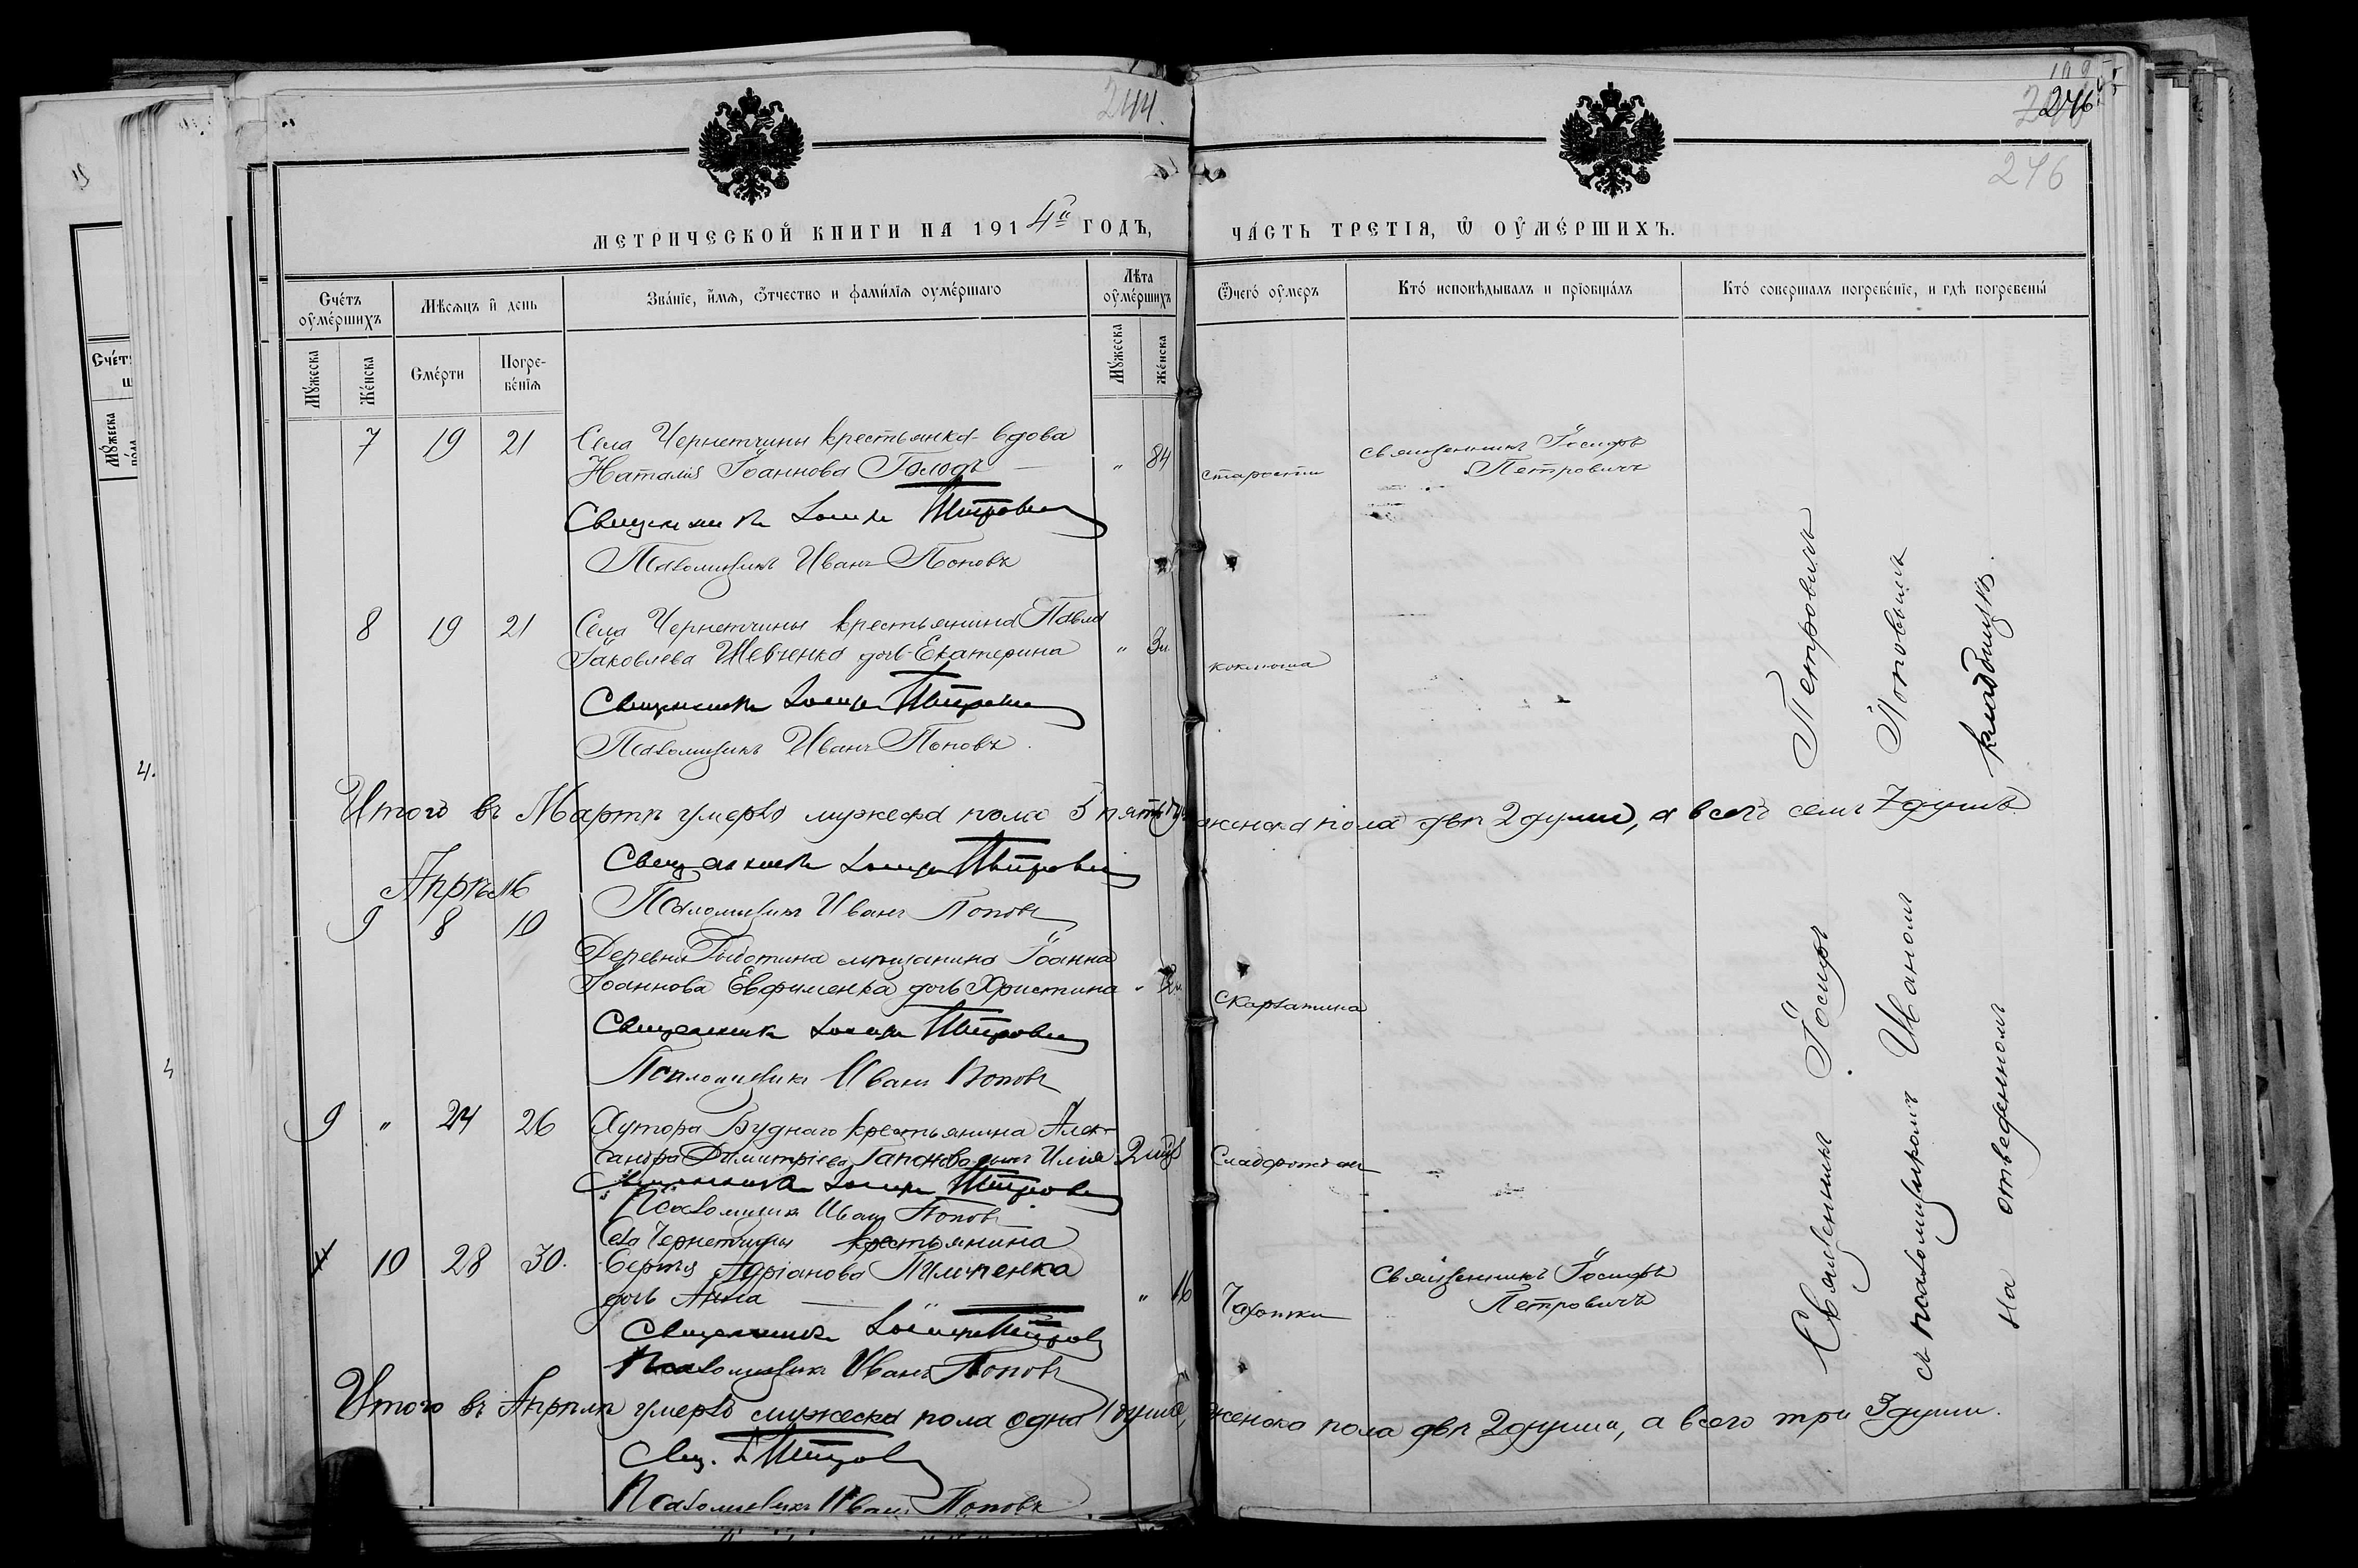 244.
246
246
МЕТРИЧЕСКОЙ КНИГИ НА 1914й ГОДЪ,
ЧАСТЬ ТРЕТІЯ, Ѡ ОУМЕРШИХЪ.
Счетъ оумершихъ
Мѣсяцъ и день
Званіе, имя, отчество и фамилія оумершаго
Лѣта оумершихъ
Ѿчего оумеръ
Кто исповѣдывалъ и пріобщалъ
Кто совершалъ погребеніе, и гдѣ погребены
Мужеска
Женска
Смерти
Погребенія
Мужеска
Женска
7 19 21 Села Чернетчины крестьянка вдова
Наталія Іоаннова Голодъ — " 84 старости Священникъ Іосифъ
Петровичъ
Священникъ Іосифъ Петровичъ
Псаломщикъ Иванъ Поповъ
8 19 21 Села Чернетчины крестьянина Павла
Іаковлева Шевченка дочь Екатерина " 3м коклюша
Священникъ Іосифъ Петровичъ
Псаломщикъ Иванъ Поповъ.
Итого въ Мартѣ умерло мужеска пола 5 пять душъ женска пола двѣ 2 души, а всего семь 7 душъ
Священникъ Іосифъ Петровичъ
Апрѣль
Псаломщикъ Иванъ Поповъ
9 8 10
Деревни мѣщанина Іоанна
Іоаннова Евфименка дочь Христина " скарлатина
Священникъ Іосифъ Петровичъ
Псаломщикъ Иванъ Поповъ
9 " 24 26 Хутора Буднаго крестьянина Алек-
сандра Димитріева Гапонова сынъ Илія 2
Священникъ Іосифъ Петровичъ
Псаломщикъ Иванъ Поповъ
Села Чернетчины крестьянина
10 28 30. Сергія Адріанова Пилипенка
дочь Анна — " 16 Чахотки Священникъ Іосифъ
Петровичъ
Священникъ Іосифъ Петровичъ
Псаломщикъ Иванъ Поповъ
Итого въ Апрѣлѣ умерло мужеска пола одна 1 душа, женска пола двѣ 2 души, а всего три 3 души.
Свящ. І Петровичъ
Псаломщикъ Иванъ Поповъ
Священникъ Іосифъ Петровичъ
съ псаломщикомъ Иваномъ Поповымъ
на отведенномъ кладбищѣ.